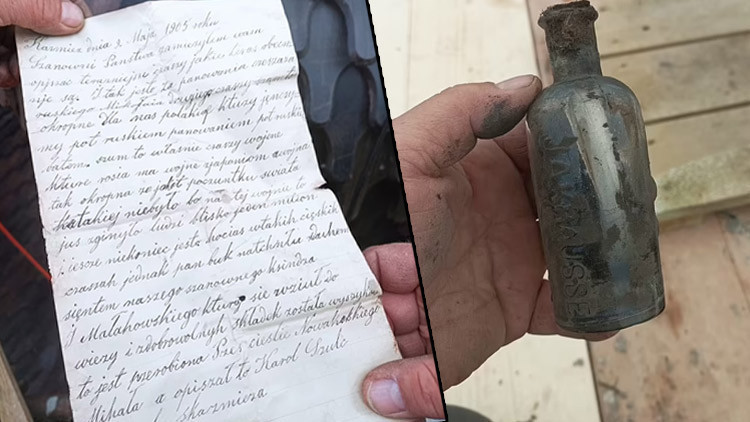 Karmiea dnia 2 Maja 1905 roku
Szanowni Państwo zamierzylem wam
opisac teraznijsze czasy jakie teras obecne
nije są. I tak jest że panowania czeszaza
ruskiego Mikołaja drugiego czasy
okropne dla nas polaków ktury jenezy
my pot ruskiem panowaniem pot ruskim
batem. osem to właśnie czasy wojene
Mture rosia ma wojne zjaponiom awojna
tak okropna ze jdot poczontku swiata
takiej niebyło bo na tej wojnie to
jus zginyło ludzi blisko jeden milion
i iesze niekoniec jeste hocias wtakih ciężkich
czasah jednak pan buk natchniłu Duchem
sientem naszego szanownego ksindza
Małahowskiego ktury sie wzioł do
wiezy i zdobrowolnyh składek została
to jest pserobiona Pzes cieslie Nowakoskiego
Mihała a opiszał to Karol Szulc
skazmieza
JAK HAUSE